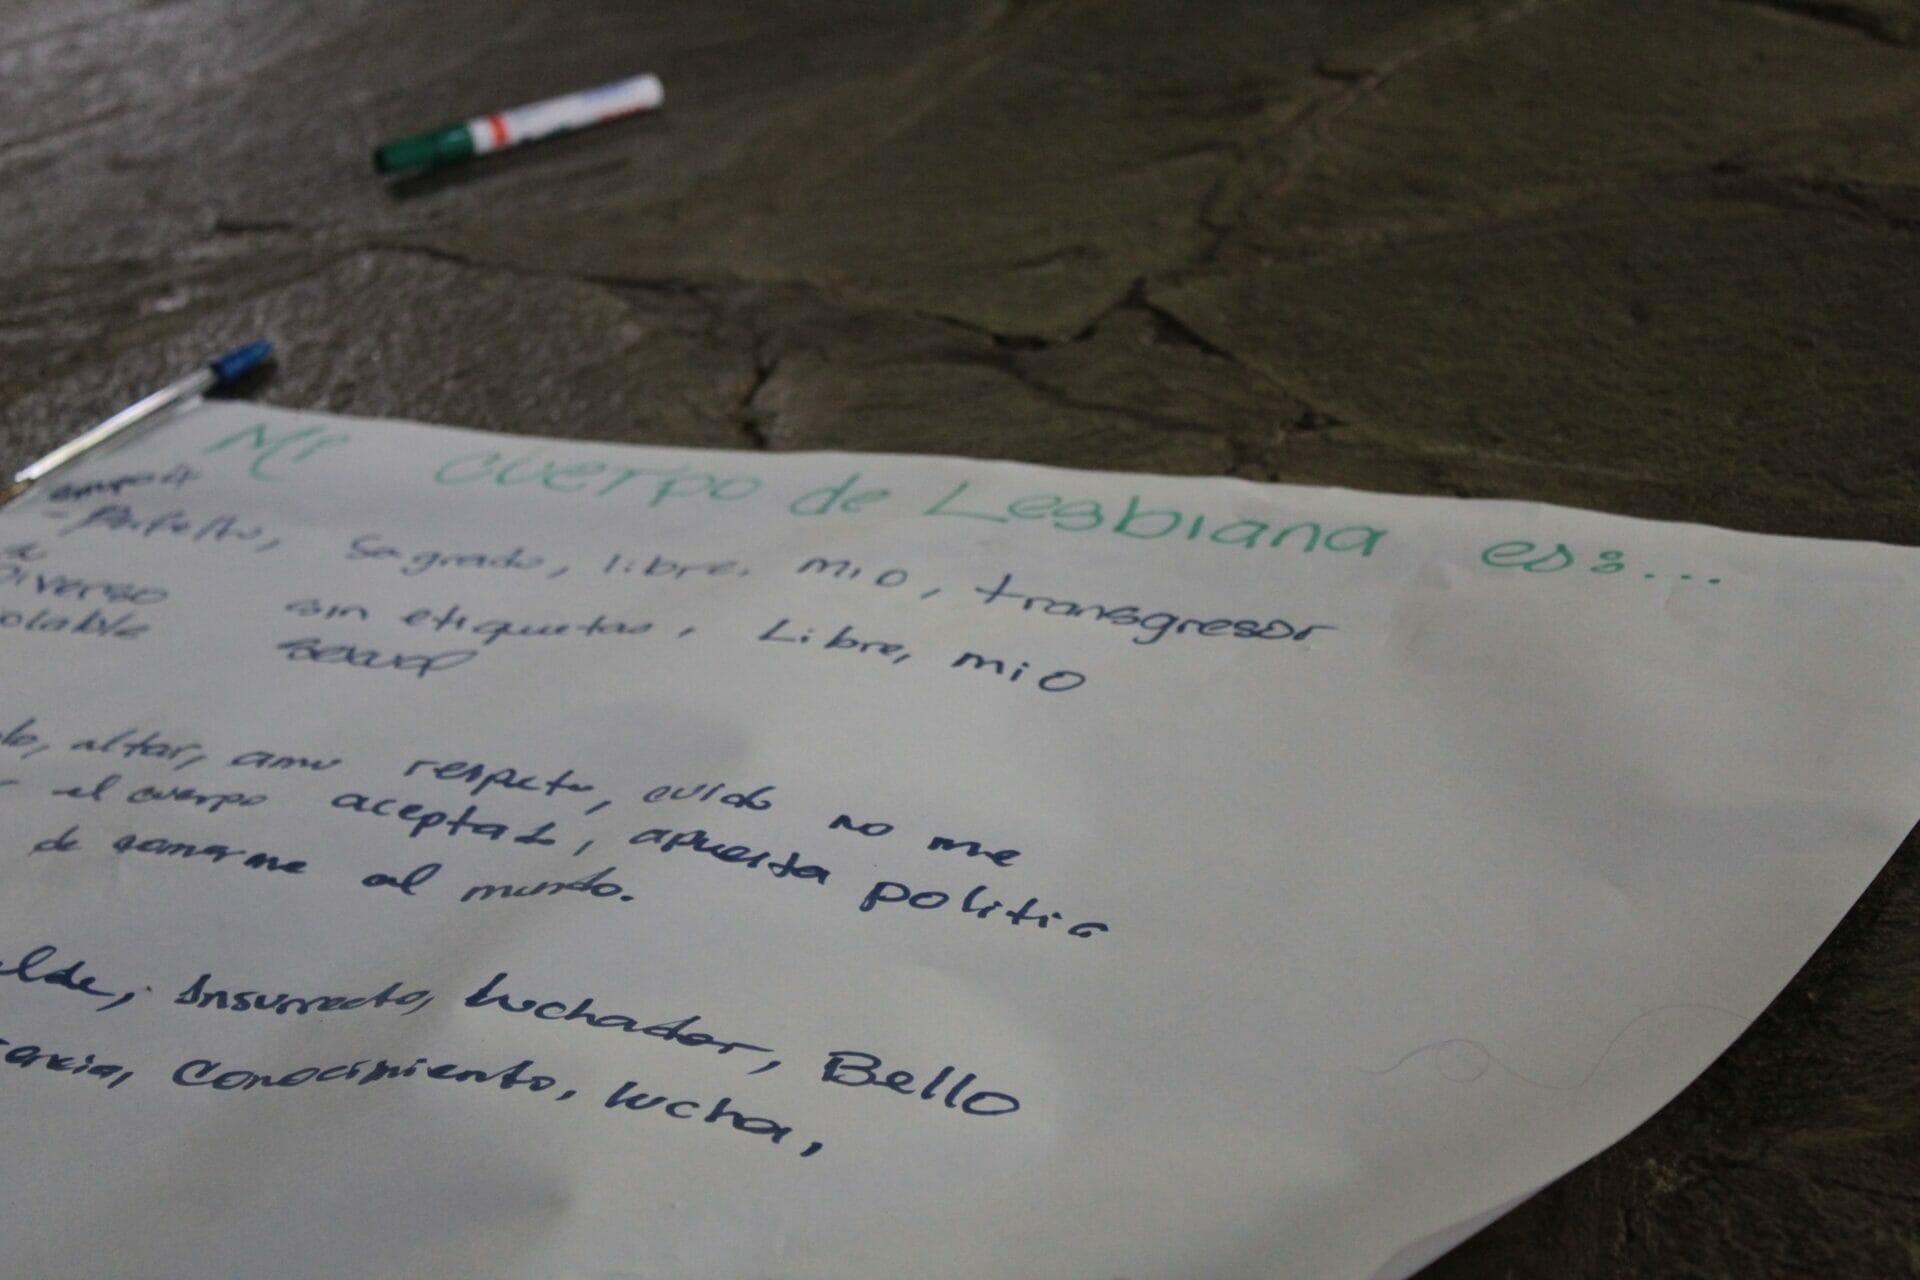 Mi cuerpo de Lesbiana es:...
grupo 4
- Perfecto, Sagrado, libre, mio, transgresor
Diverso sin etiquetas, Libre, mio
olable sexual
altar, amo respeto, cuido no me
el cuerpo aceptas, apuesta politica
de al mundo.
elde, Insurrecto, luchador, Bello
encia, Conocimiento, lucha,